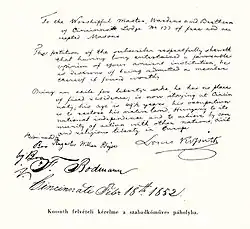 To the Worshipful Master, Wardens and Brethren
of Cincinnati Lodge No 133 of free and ac-
cepted Masons
The petition of the subscriber respectfully showeth
that having long entertained a favourable
opinion of your ancient institution, he
is desirous of being admitted a member
thereof if found worthy.
Being an exile for liberty's sake he has no place
of fixed residence, is now staying at Cincin-
nati; his age is 49½ years his occupation
is to restore his native land, Hungary to its
national independence, and to achieve by com-
munity of action with other nations, civil
and religious liberty in Europe
Louis Kossuth
Bros
F Bodmann
Cincinnati Febr 18th 1852.
Kossuth felvételi kérelme a szabadkőműves páholyba.